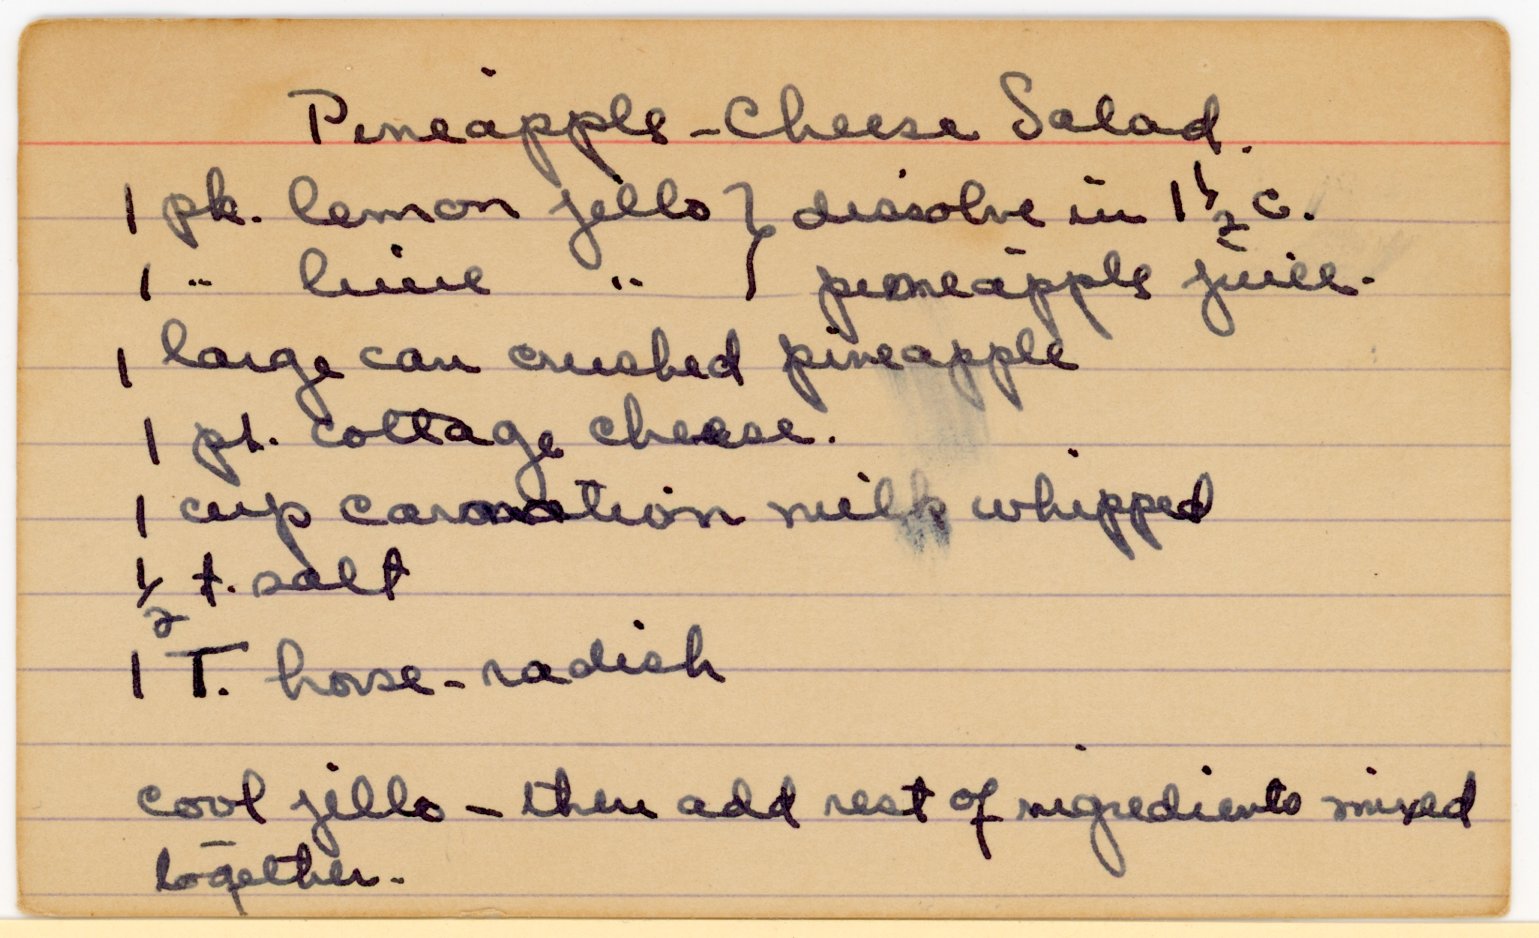 Pineapple - Cheese Salad.
1 pk. lemon jello } dissolve in 1 1/2 c.
1 " lime " } pineapple juice.
1 large can crushed pineapple
1 pt. cottage cheese.
1 cup carnation milk whipped
1/2 t. salt
1 T. horse-radish
cool jello - then add rest of ingredients mixed
together.